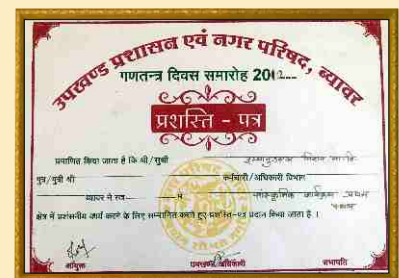 उपखण्ड प्रशासन एवं नगर परिषद, ब्यावर
गणतन्त्र दिवस समारोह 2012
प्रशस्ति - पत्र
प्रमाणित किया जाता है कि श्री/सुश्री
पुत्र/पुत्री श्री कर्मचारी/अधिकारी विभाग
ब्यावर ने स्व. में सांस्कृतिक कार्यक्रम प्रथम
क्षेत्र में प्रशंसनीय कार्य करने के लिए सम्मानित करते हुए प्रशस्ति-पत्र प्रदान किया जाता है ।
आयुक्त उपखण्ड अधिकारी सभापति